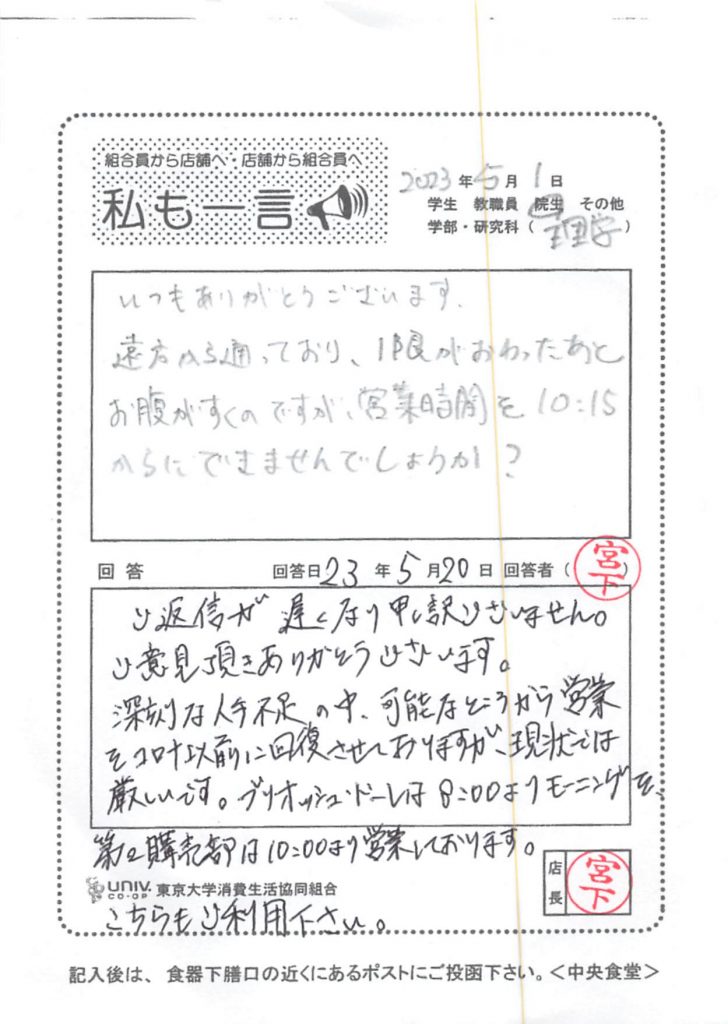 組合員から店舗へ・店舗から組合員へ
私も一言
2023年5月1日
学生 教職員 院生 その他
学部・研究科（理学）
いつもありがとうございます.
遠方から通っており、1限がおわったあと
お腹がすくのですが、営業時間を10:15
からにできませんでしょうか?
回答 回答日23年5月20日 回答者（宮下）
ご返信が遅くなり申し訳ございません。
ご意見頂きありがとうございます。
深刻な人手不足の中、可能なところから営業
をコロナ以前に回復させておりますが、現状では
厳しいです。ブリオッシュ・ドーレは8:00よりモーニングを、
第2購売部は10:00より営業しております。
UNIV. CO-OP 東京大学消費生活協同組合
店長 宮下
こちらもご利用下さい。
記入後は、食器下膳口の近くにあるポストにご投函下さい。＜中央食堂＞